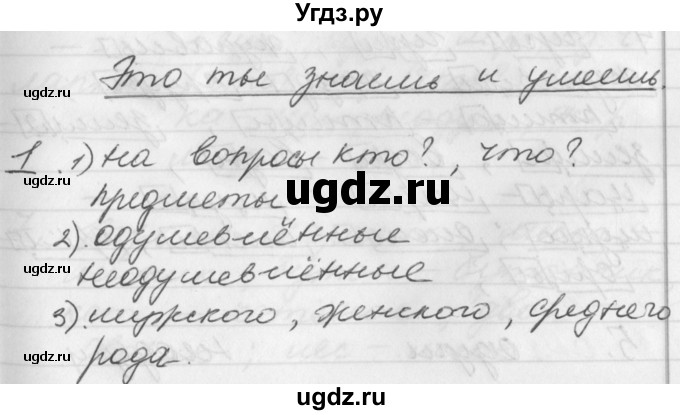 Угдз.ру
Это ты знаешь и умеешь.
ugdz.ru
ugdz.ru
1. 1) на вопросы кто?, что?
ugdz.ru
предметы
ugdz.ru
2). одушевлённые
ugdz.ru
неодушевлённые
3). мужского, женского, среднего
ugdz.ru
рода.
ugdz.ru
ugdz.ru